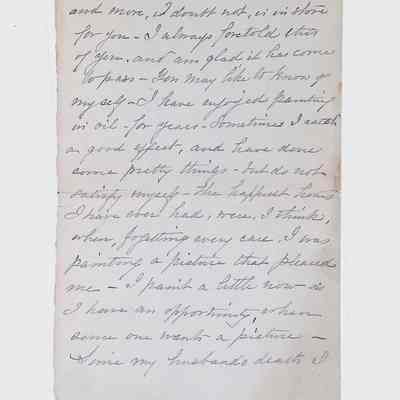 and more, I doubt not, is in store
for you - I always foretold this
of you, and am glad it has come
to pass - You may like to know of
myself - I have enjoyed painting
in oil - for years - Sometimes I catch
a good effect, and have done
some pretty things - but do not
satisfy myself - The happiest hours
I have ever had, were, I think,
when, forgetting every care, I was
painting a picture that pleased
me - I paint a little now as
I have an opportunity, when
some one wants a picture -
Since my husbands death I